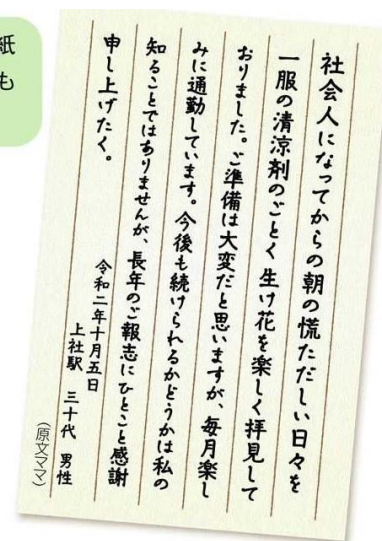 紙
も
社会人になってからの朝の慌ただしい日々を
一服の清涼剤のごとく 生け花を楽しく拝見して
おりました。ご準備は大変だと思いますが、毎月楽し
みに通勤しています。今後も続けられるかどうかは私の
知ることではありませんが、長年のご報志にひとこと感謝
申し上げたく。
令和二年十月五日
上社駅 三十代 男性
(原文ママ)